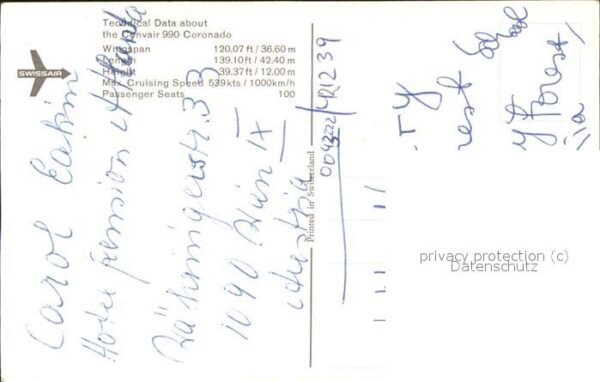 Technical Data about
the Convair 990 Coronado
Wingspan 120.07 ft / 36.60 m
Length 139.10 ft / 42.40 m
Height 39.37 ft / 12.00 m
Max. Cruising Speed 539 kts / 1000 km/h
Passenger Seats 100
SWISSAIR
Carol Eakin
Hotel pension Atlanta
Währingerstr. 33
1090 Wien IX
Austria
Printed in Switzerland
privacy protection (c)
Datenschutz